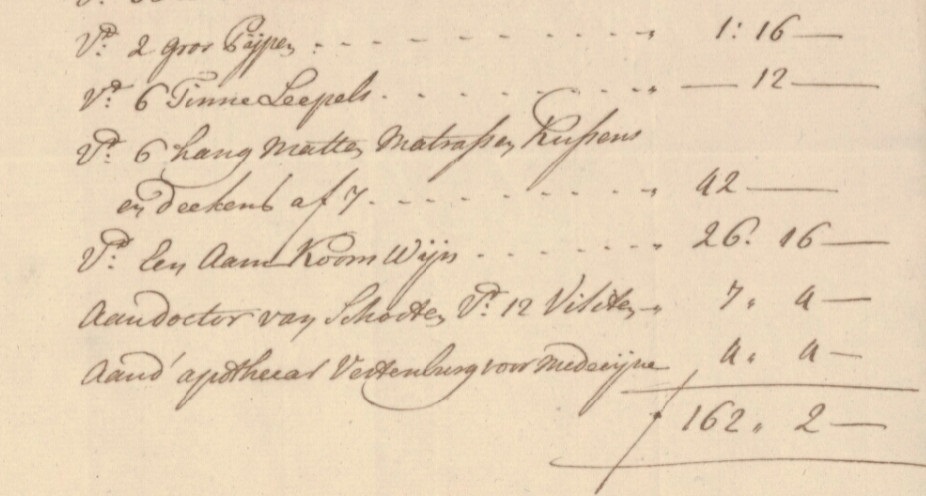 Vr: 2 gros Pijpen 1: 16 —
Vr: 6 Tinne Leepels — 12 —
Vr: 6 hang Matten Matrassen Kussens
en deekens af 7 42 —
Vr: Een Aam Room Wijn 26. 16 —
Aan doctor van Schooten Vr: 12 Visiten 7 " 4 —
Aand' apothecar Vertenburg voor medecijne 4 " 4 —
162 " 2 —